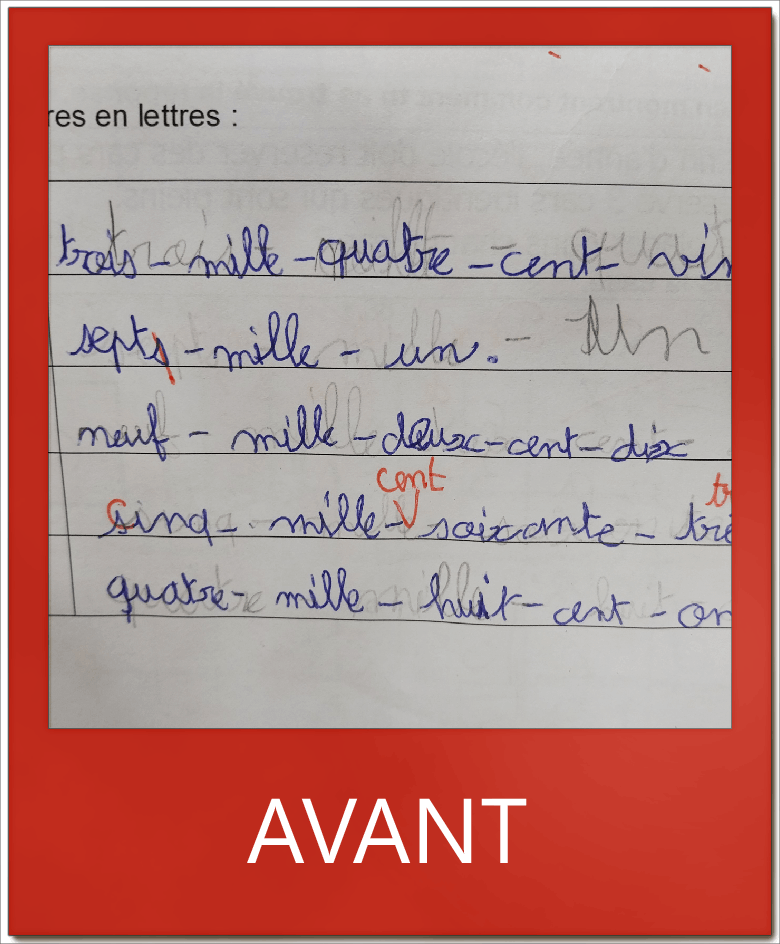 res en lettres :
trois - mille - quatre - cent - vin
septs - mille - un. - Un
neuf - mille - deux - cent - dix
cent tr
sinq - mille - soixante - tre
quatre - mille - huit - cent - on
AVANT